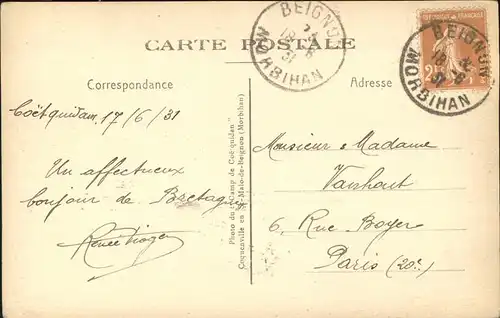 CARTE POSTALE
BEIGNON
MORBIHAN
BEIGNON
18 -6
31
MORBIHAN
Correspondance
Adresse
Coëtquidan, 17/6/31
Un affectueux
bonjour de Bretagne
Renée
Photo du Camp de Coëtquidan
en St-Malo-de-Beignon (Morbihan)
Monsieur & Madame
Vanhout
6, Rue Boyer
Paris (20e)